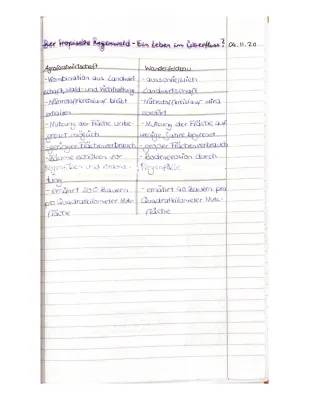 Der tropische Regenwald - Ein Leben im Überfluss? 04.11.20
Agroforstwirtschaft
- Kombination aus Landwirt-
schaft, Wald- und Viehhaltung
- Nährstoffkreislauf bleibt
erhalten
- Nutzung der Fläche unbe-
grenzt möglich
- geringer Flächenverbrauch
- Bäume schützen vor
Regenfällen und
- ernährt 200 Bauern
pro Quadratkilometer Nutz-
fläche
Wanderfeldbau
- ausschließlich
Landwirtschaft
- Nährstoffkreislauf wird
zerstört
- Nutzung der Fläche auf
wenige Jahre begrenzt
- großer Flächenverbrauch
- Bodenerosion durch
Regenfälle
- ernährt 40 Bauern pro
Quadratkilometer Nutz-
fläche